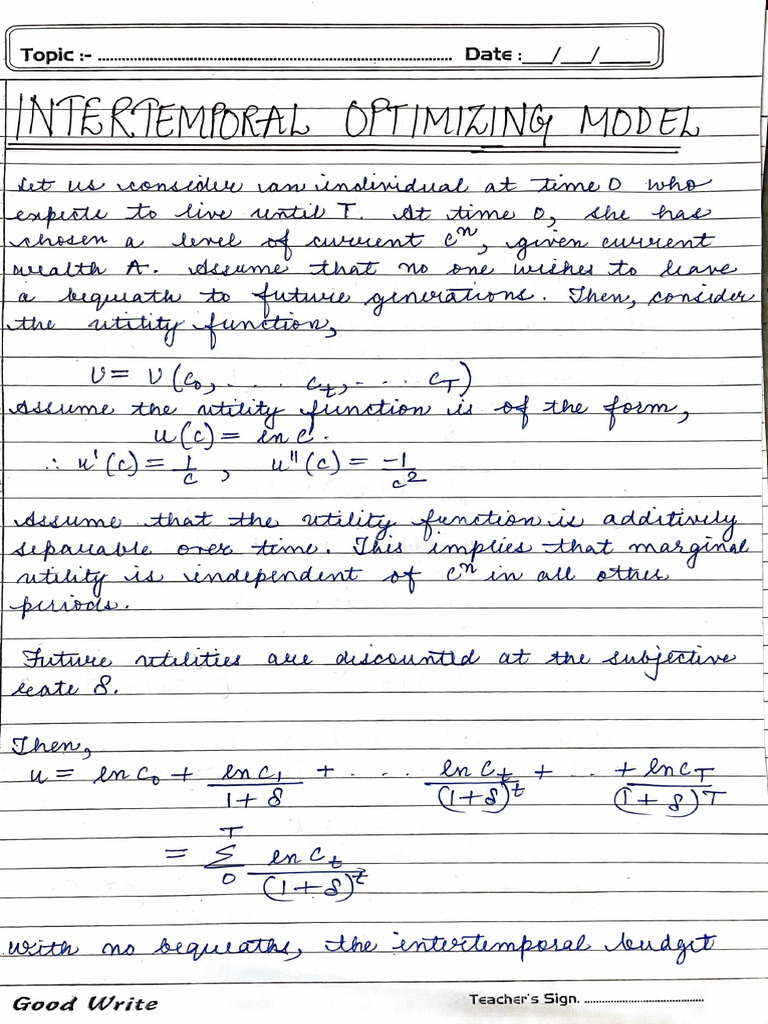 Topic :- ........................................ Date : __/__/____
INTERTEMPORAL OPTIMIZING MODEL
Let us consider an individual at time 0 who
expects to live until T. At time 0, she has
chosen a level of current cⁿ, given current
wealth A. Assume that no one wishes to leave
a bequeath to future generations. Then, consider
the utility function,
U = U (c₀, . . . . cₜ, . . . . c_T)
Assume the utility function is of the form,
u(c) = ln c.
∴ u'(c) = 1/c , u''(c) = -1/c²
Assume that the utility function is additively
separable over time. This implies that marginal
utility is independent of cⁿ in all other
periods.
Future utilities are discounted at the subjective
rate δ.
Then,
u = ln c₀ + ln c₁/(1+δ) + . . . ln cₜ/(1+δ)ᵗ + . . + ln c_T/(1+δ)^T
= Σ₀^T ln cₜ/(1+δ)ᵗ
With no bequeaths, the intertemporal budget
Good Write Teacher's Sign. ..............................